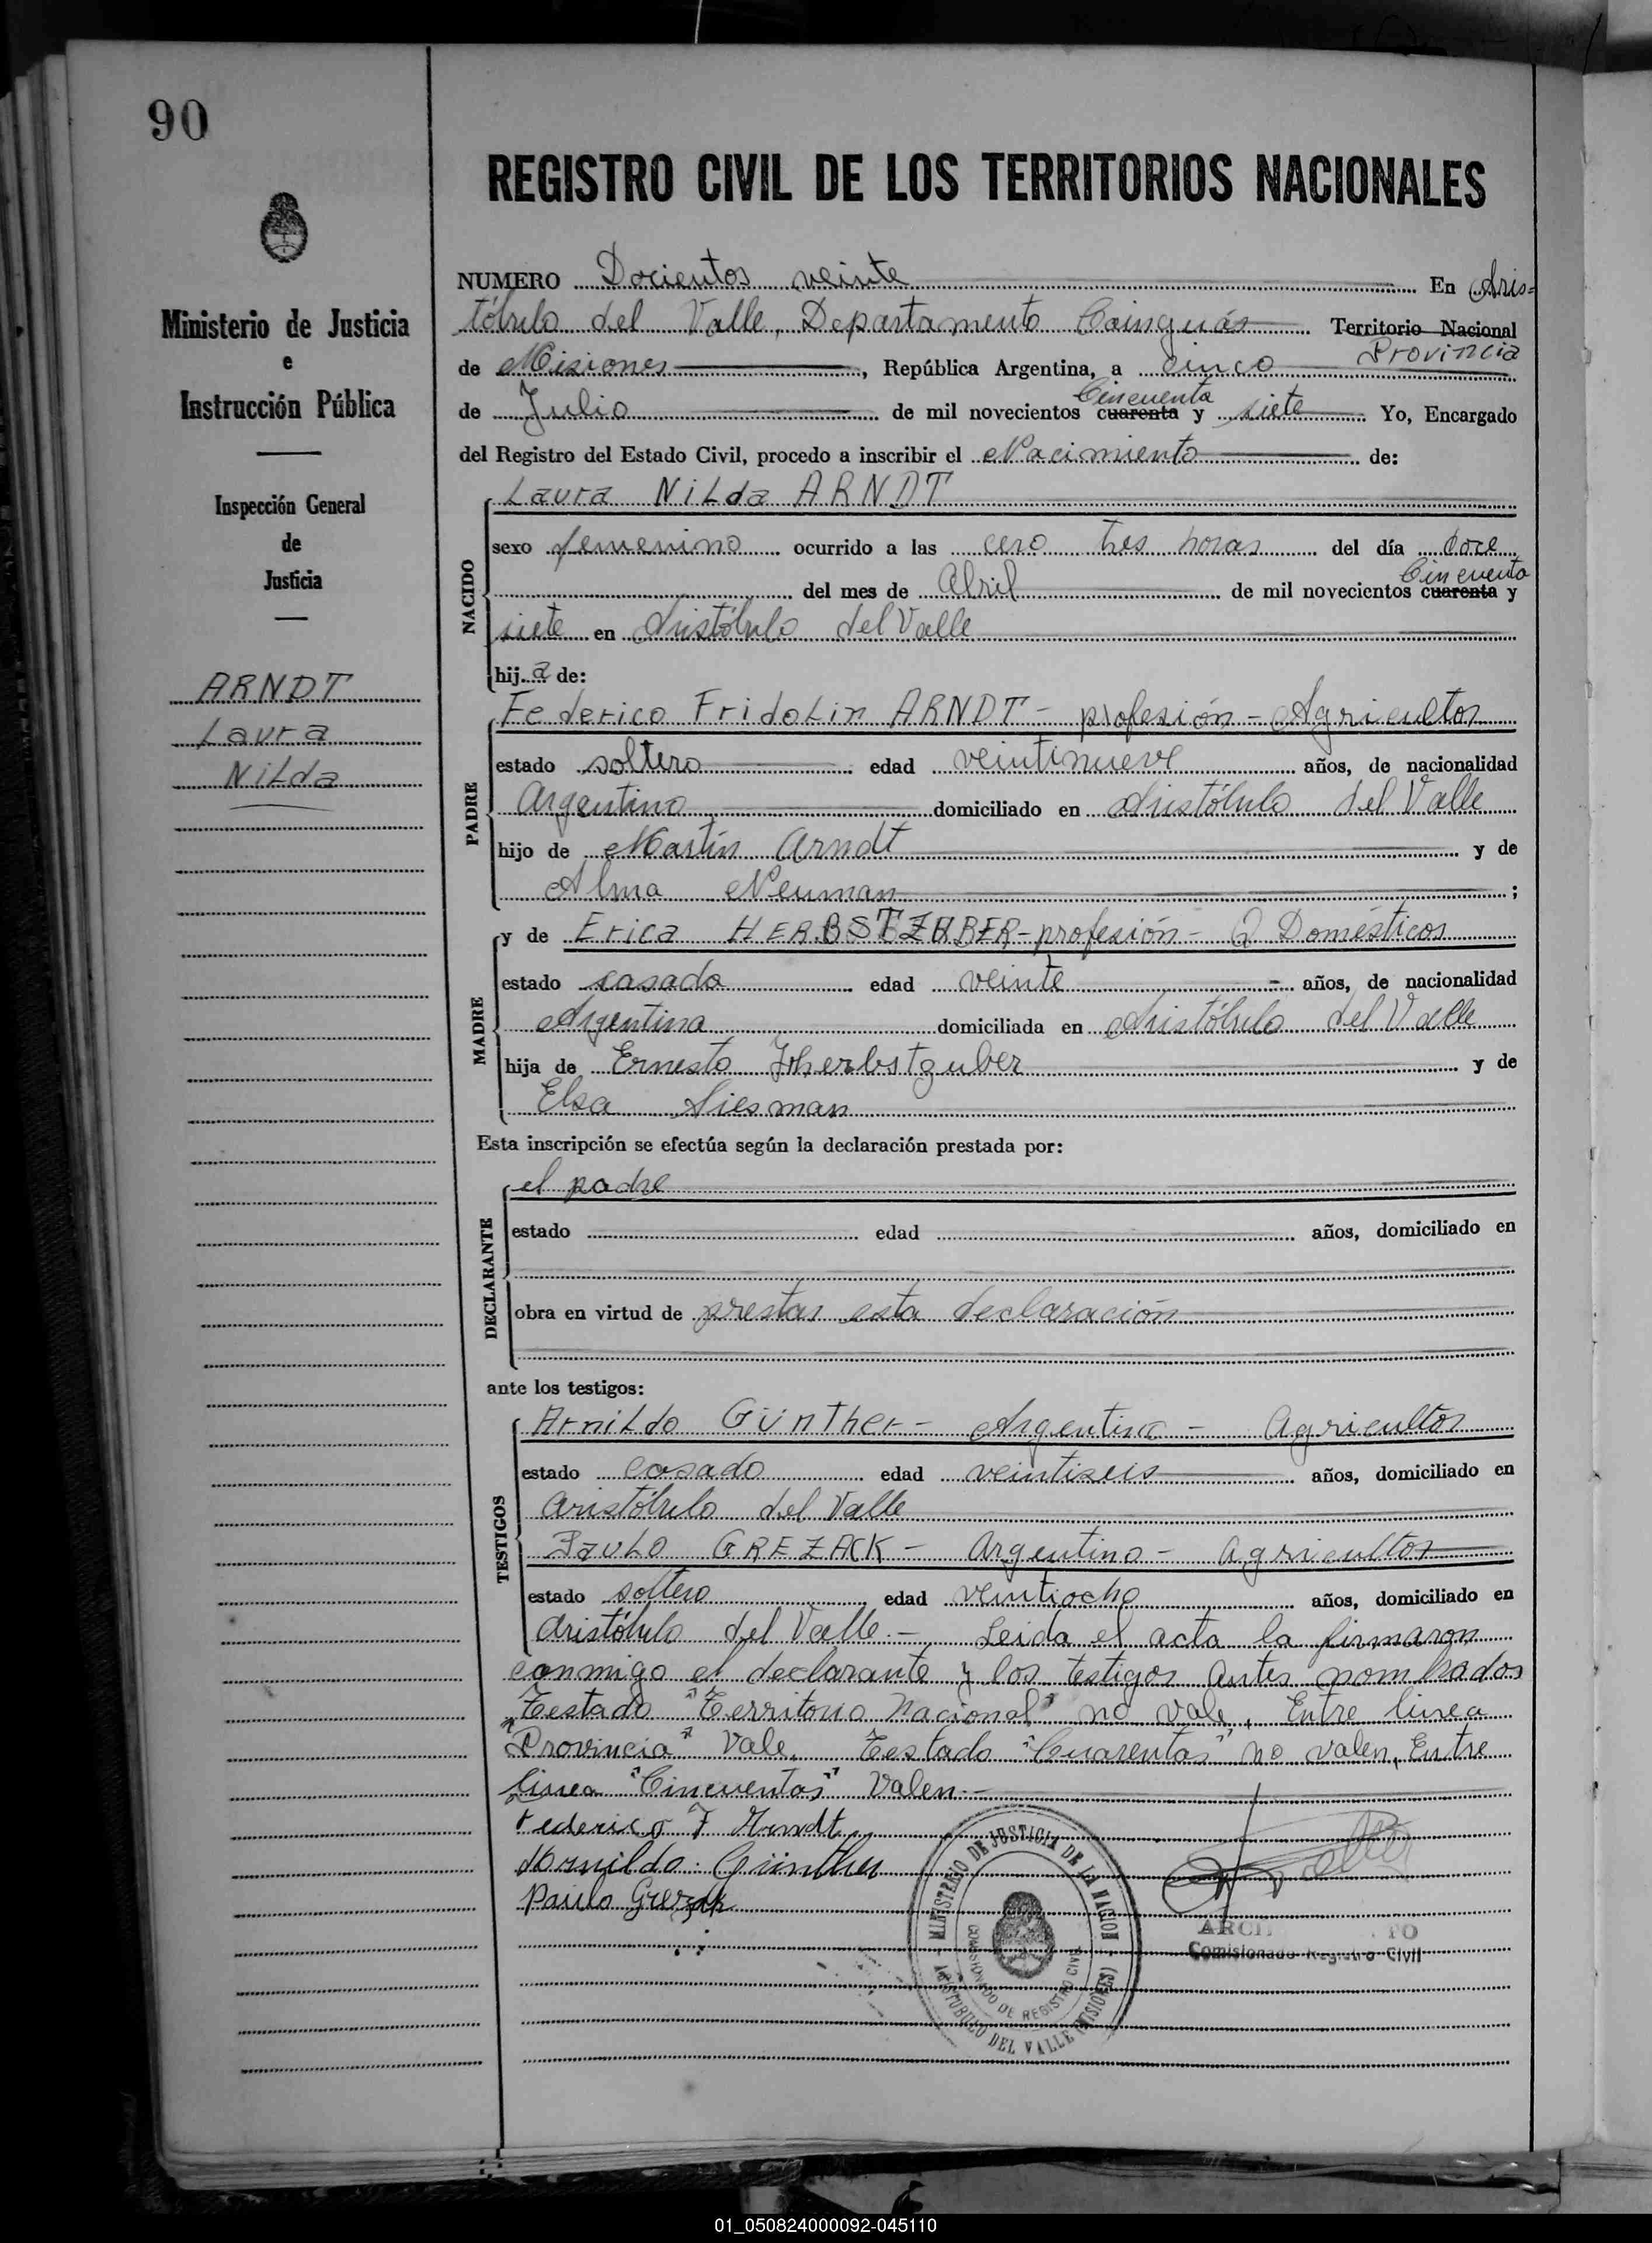 90
REGISTRO CIVIL DE LOS TERRITORIOS NACIONALES
Ministerio de Justicia
e
Instrucción Pública
Inspección General
de
Justicia
ARNDT
Laura
Nilda
NUMERO Docientos veinte En Aris=
tóbulo del Valle, Departamento Cainguás Territorio Nacional
Provincia
de Misiones, República Argentina, a cinco
Cincuenta
de Julio de mil novecientos cuarenta y siete Yo, Encargado
del Registro del Estado Civil, procedo a inscribir el Nacimiento de:
NACIDO
Laura Nilda ARNDT
sexo femenino ocurrido a las cero tres horas del día doce
Cincuenta
del mes de Abril de mil novecientos cuarenta y
siete en Aristóbulo del Valle
hij a de:
PADRE
Federico Fridolin ARNDT - profesión - Agricultor
estado soltero edad veintinueve años, de nacionalidad
Argentino domiciliado en Aristóbulo del Valle
hijo de Martin Arndt y de
Alma Neuman ;
MADRE
y de Erica HERBSTZUBER - profesión - Q Domésticos
estado casada edad veinte - años, de nacionalidad
Argentina domiciliada en Aristóbulo del Valle
hija de Ernesto y de
Elsa Siesman
Esta inscripción se efectúa según la declaración prestada por:
DECLARANTE
el padre
estado edad años, domiciliado en
obra en virtud de prestar esta declaración
ante los testigos:
TESTIGOS
Arnildo Günther - Argentino - Agricultor
estado casado edad veintiseis años, domiciliado en
Aristóbulo del Valle
Paulo GREZACK - Argentino - Agricultor
estado soltero edad veintiocho años, domiciliado en
Aristóbulo del Valle.- Leida el acta la firmaron
conmigo el declarante y los testigos antes nombrados
Testado "Territorio Nacional" no vale, Entre linea
"Provincia" Vale. Testado "Cuarentas" no valen, Entre
linea "Cincuentas" Valen.-
Federico F Arndt
Arnildo Günther
Paulo Grezak
MINISTERIO DE JUSTICIA DE LA NACION
COMISIONADO DE REGISTRO CIVIL
ARISTOBULO DEL VALLE (MISIONES)
Comisionado Registro Civil
01_050824000092-045110